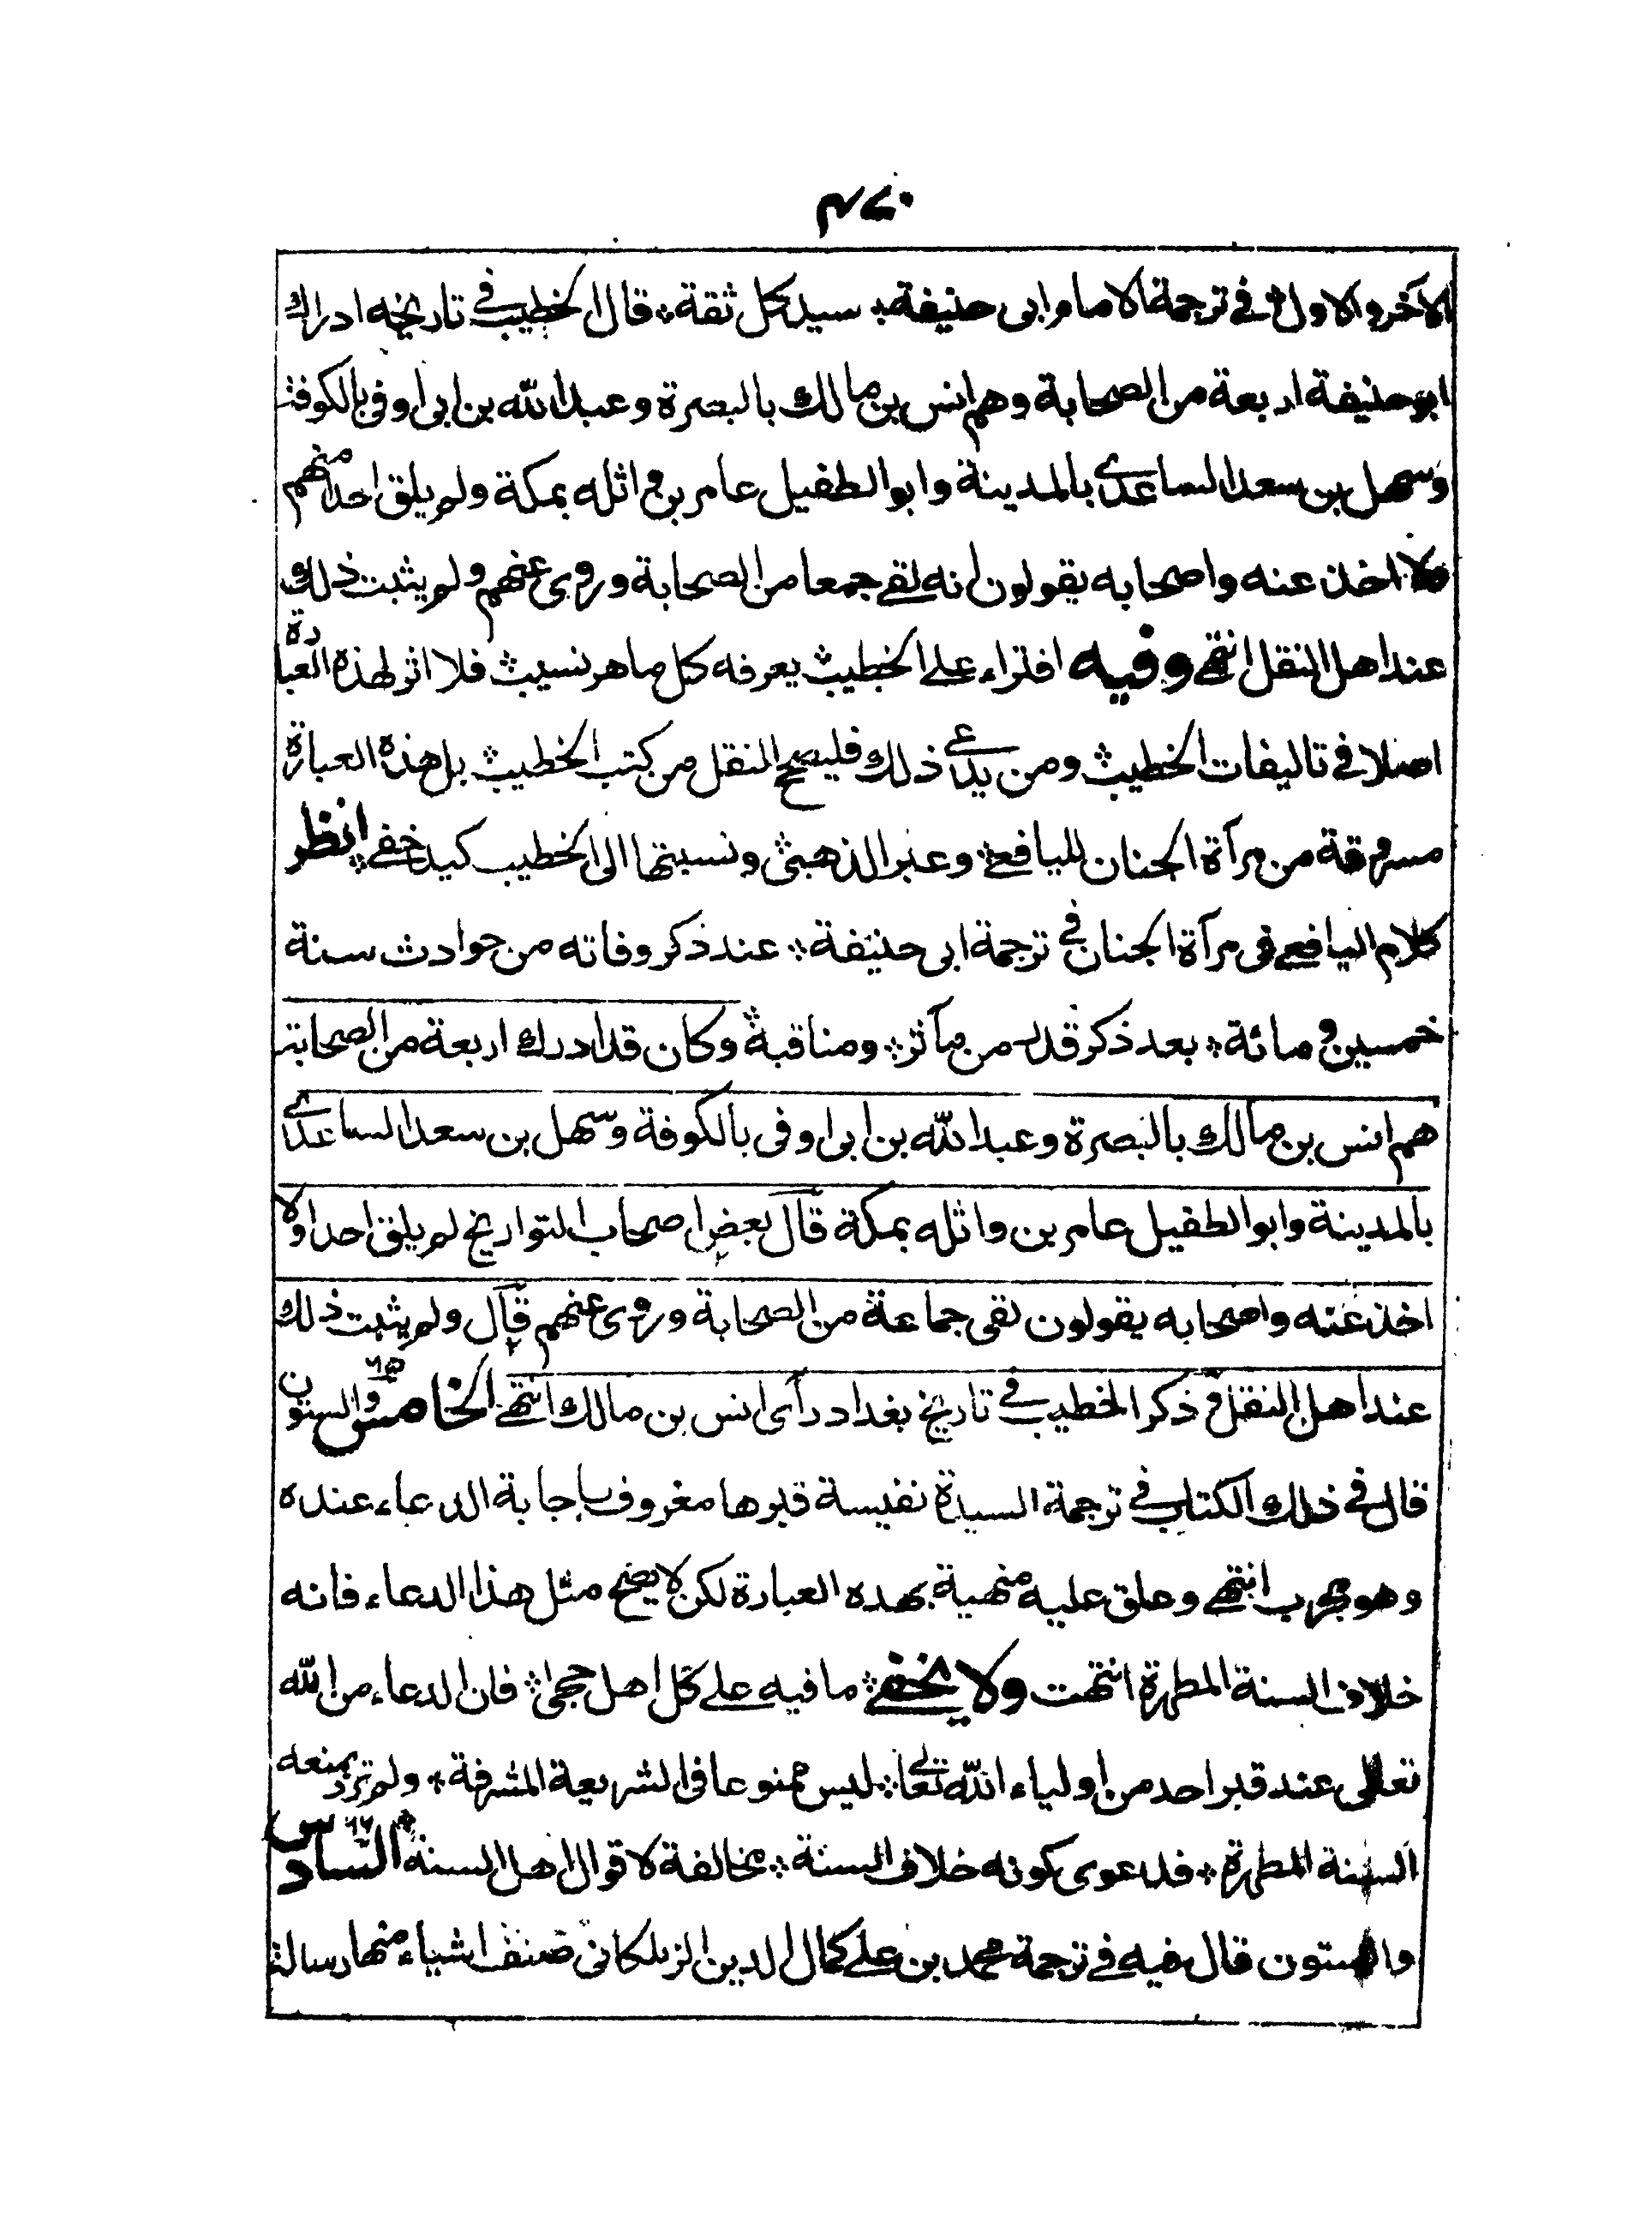 ٤٧٠
الآخر والاول في ترجمة الامام ابى حنيفة ؞ سيد كل ثقة ؞ قال الخطيب في تاريخه ادراك
ابو حنيفة اربعة من الصحابة وهم انس بن مالك بالبصرة وعبد الله بن ابى اوفى بالكوفة
وسهل بن سعد الساعدى بالمدينة وابو الطفيل عامر بن واثله بمكة ولم يلق احدا منهم
ولا اخذ عنه واصحابه يقولون انه لقى جمعا من الصحابة وروى عنهم ولم يثبت ذلك
عند اهل النقل انتهى وفيه افتراء على الخطيب ؞ يعرفه كل ماهر نسيب ؞ فلا اثر لهذه العبارة
اصلا في تاليفات الخطيب ؞ ومن يدعى ذلك فليصحح النقل من كتب الخطيب ؞ بل هذه العبارة
مسروقة من مرآة الجنان لليافعى ؞ وعبر الذهبى ؞ ونسبتها الى الخطيب كيد خفى ؞ انظر
كلام اليافعى فى مرآة الجنان في ترجمة ابى حنيفة ؞ عند ذكر وفاته من حوادث سنة
خمسين ومائة ؞ بعد ذكر قدر من مآثره ؞ ومناقبه ؞ وكان قد ادرك اربعة من الصحابة
هم انس بن مالك بالبصرة وعبد الله بن ابى اوفى بالكوفة وسهل بن سعد الساعدى
بالمدينة وابو الطفيل عامر بن واثله بمكة قال بعض اصحاب التواريخ لم يلق احدا ولا
اخذ عنه واصحابه يقولون لقى جماعة من الصحابة وروى عنهم قال ولم يثبت ذلك
عند اهل النقل وذكر الخطيب في تاريخ بغداد رأى انس بن مالك انتهى الخامس والستون ٦٥
قال في ذلك الكتاب في ترجمة السيدة نفيسة قبرها معروف باجابة الدعاء عنده
وهو مجرب انتهى وعلق عليه منهية بهذه العبارة لكن لا يصح مثل هذا الدعاء فانه
خلاف السنة المطهرة انتهت ولا يخفى ؞ ما فيه على كل اهل حجى ؞ فان الدعاء من الله
تعالى عند قبر احد من اولياء الله تعالى ؞ ليس ممنوعا فى الشريعة المشرفة ؞ ولم ترد بمنعه
السنة المطهرة ؞ فدعوى كونه خلاف السنة ؞ مخالفة لاقوال اهل السنة ؞ السادس ٦٦
والستون قال فيه في ترجمة محمد بن على كمال الدين الزملكانى صنف اشياء منها رسالة